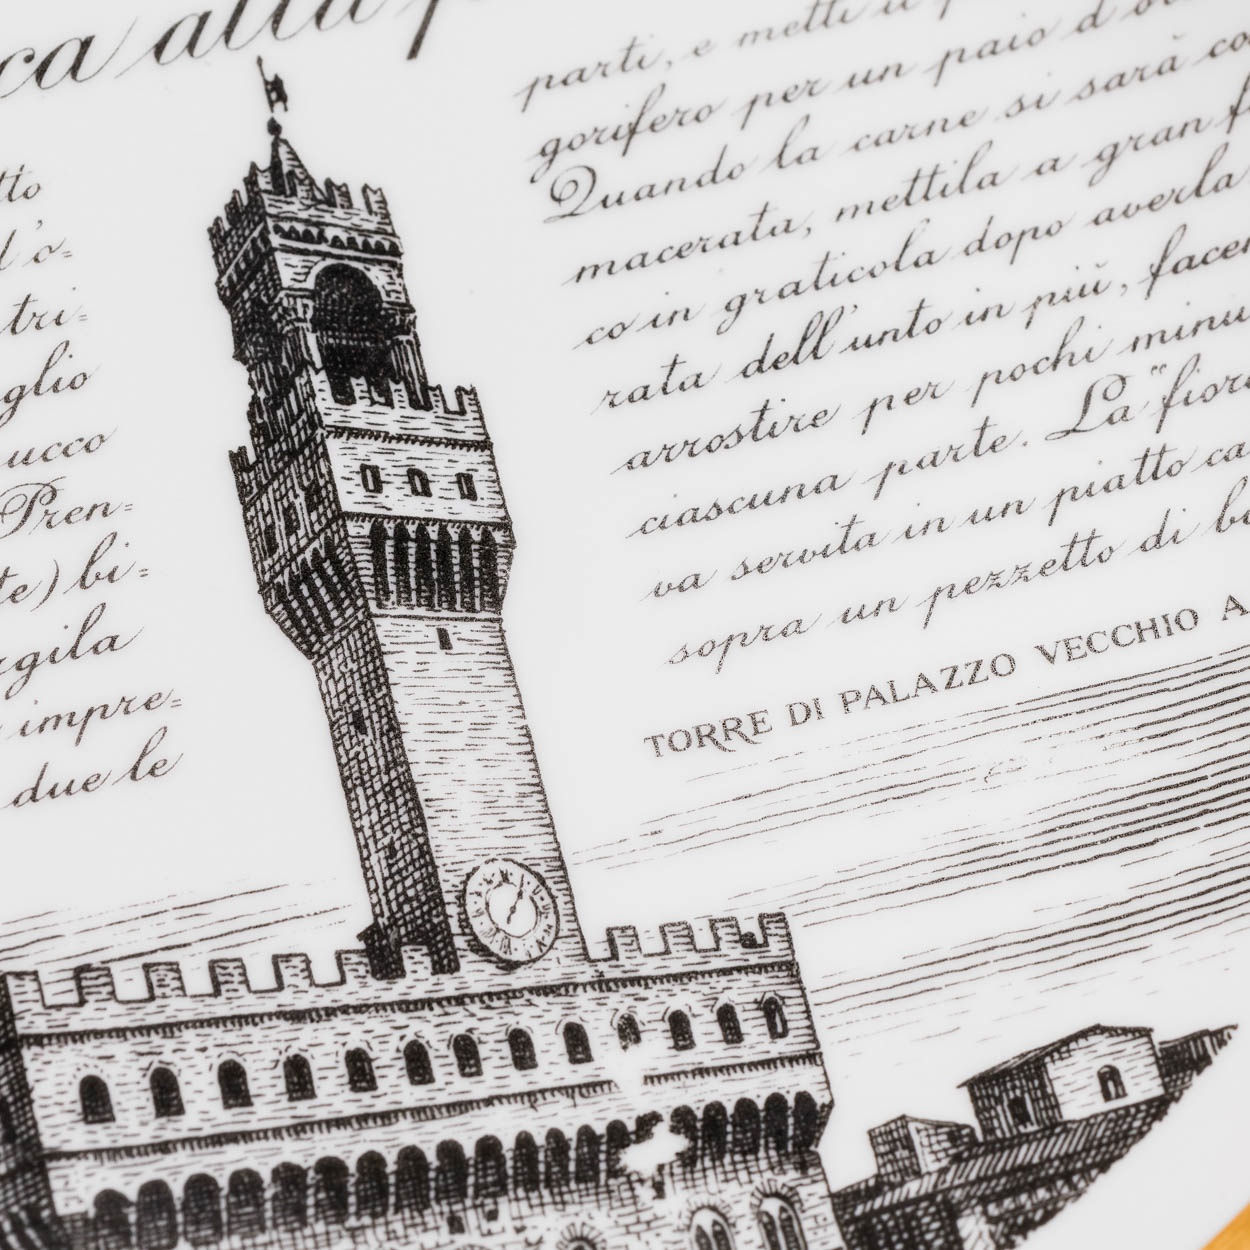 ca alla
tto
d'o=
tri=
glio
ucco
Pren=
te) bi=
rgila
impre=
due le
parti, e metti
gorifero per un paio d'o
Quando la carne si sarà co
macerata, mettila a gran f
co in graticola dopo averla
rata dell'unto in più, facen
arrostire per pochi minu
ciascuna parte. La "fiore
va servita in un piatto ca
sopra un pezzetto di bu
TORRE DI PALAZZO VECCHIO A